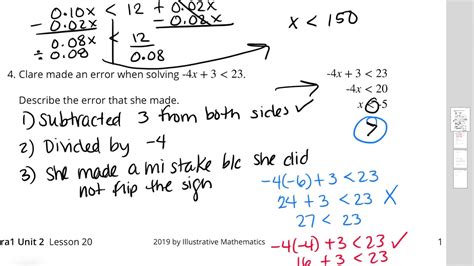 0.10x < 12 + 0.02x
- 0.02x - 0.02x
0.08x < 12
÷ 0.08 0.08
x < 150
4. Clare made an error when solving -4x + 3 < 23.
Describe the error that she made.
-4x + 3 < 23
-4x < 20
x < -5
>
1) Subtracted 3 from both sides ✓
2) Divided by -4
3) She made a mistake b/c she did
not flip the sign
-4(-6) + 3 < 23
24 + 3 < 23 X
27 < 23
-4(-4) + 3 < 23 ✓
16 + 3 < 23
ra1 Unit 2 Lesson 20
2019 by Illustrative Mathematics
1